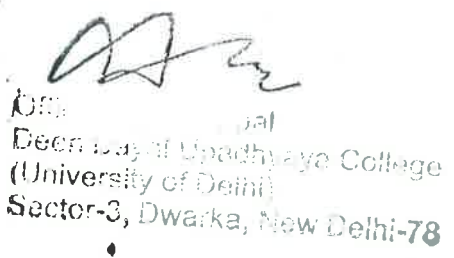 Deen Dayal Upadhyaya College
(University of Delhi)
Sector-3, Dwarka, New Delhi-78